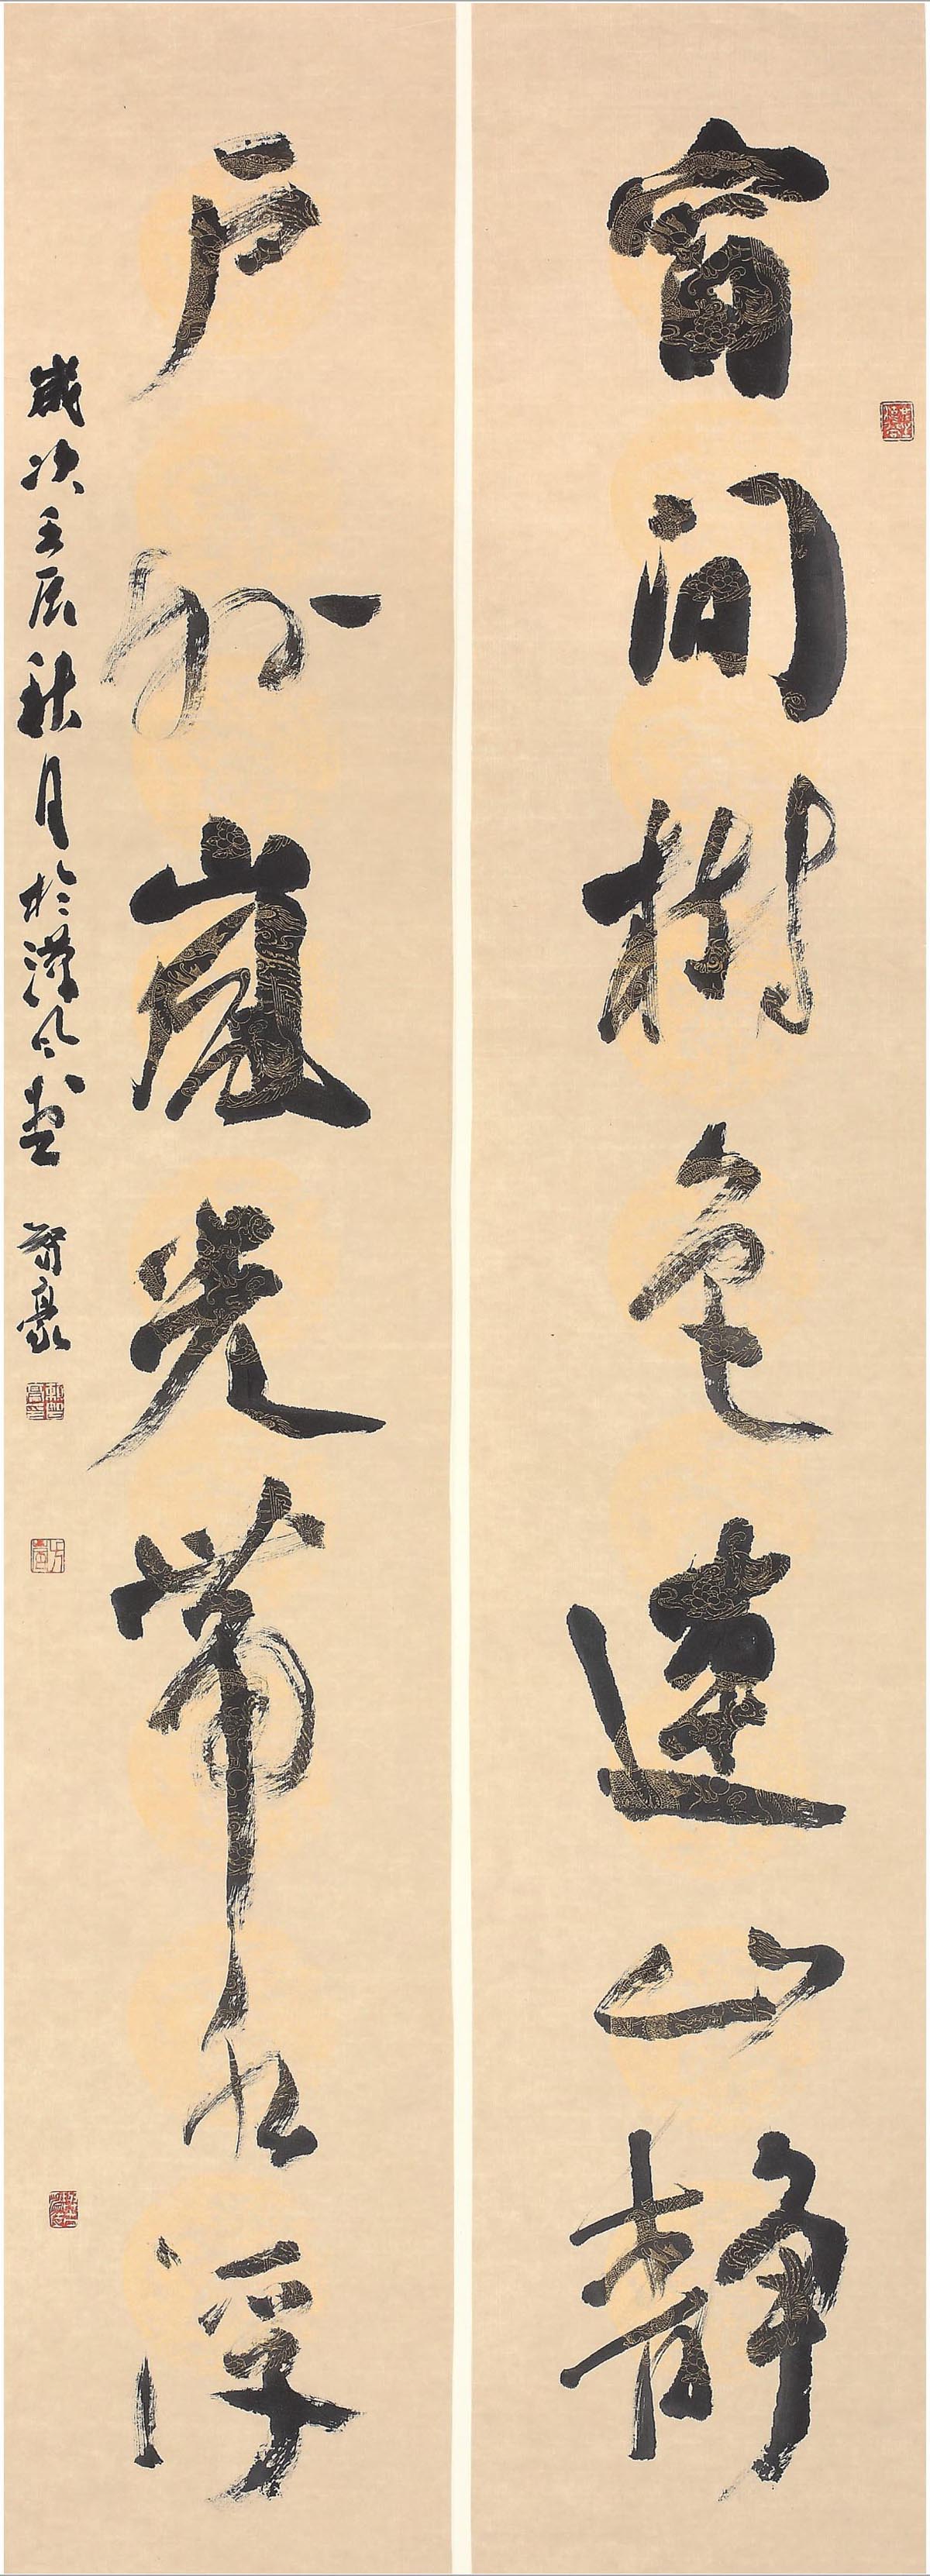 窗间树色连山静
户外岚光带水浮
岁次壬辰秋月於汉风堂